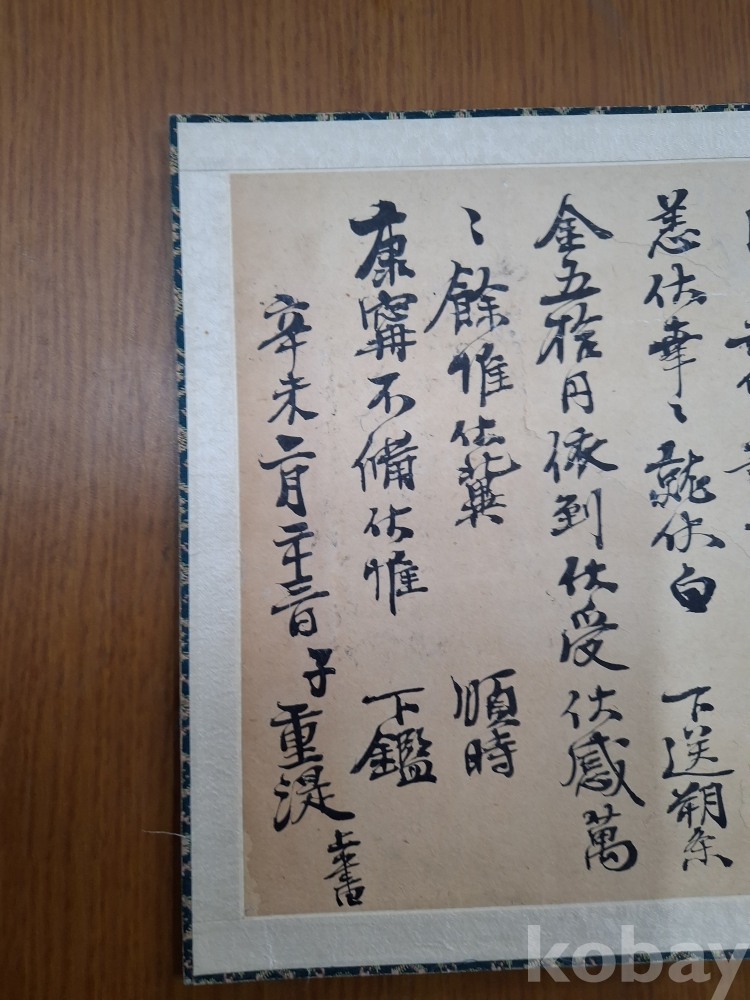 恙伏幸〻就伏白 下送朔条
金五拾円依到伏受伏感萬
〻餘惟伏冀 順時
康寧不備伏惟 下鑑
辛未二月二十三日 子 重湜 上書
kobay